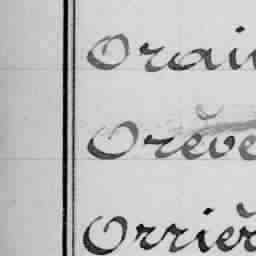 Orain
Orĕve
Orriĕr